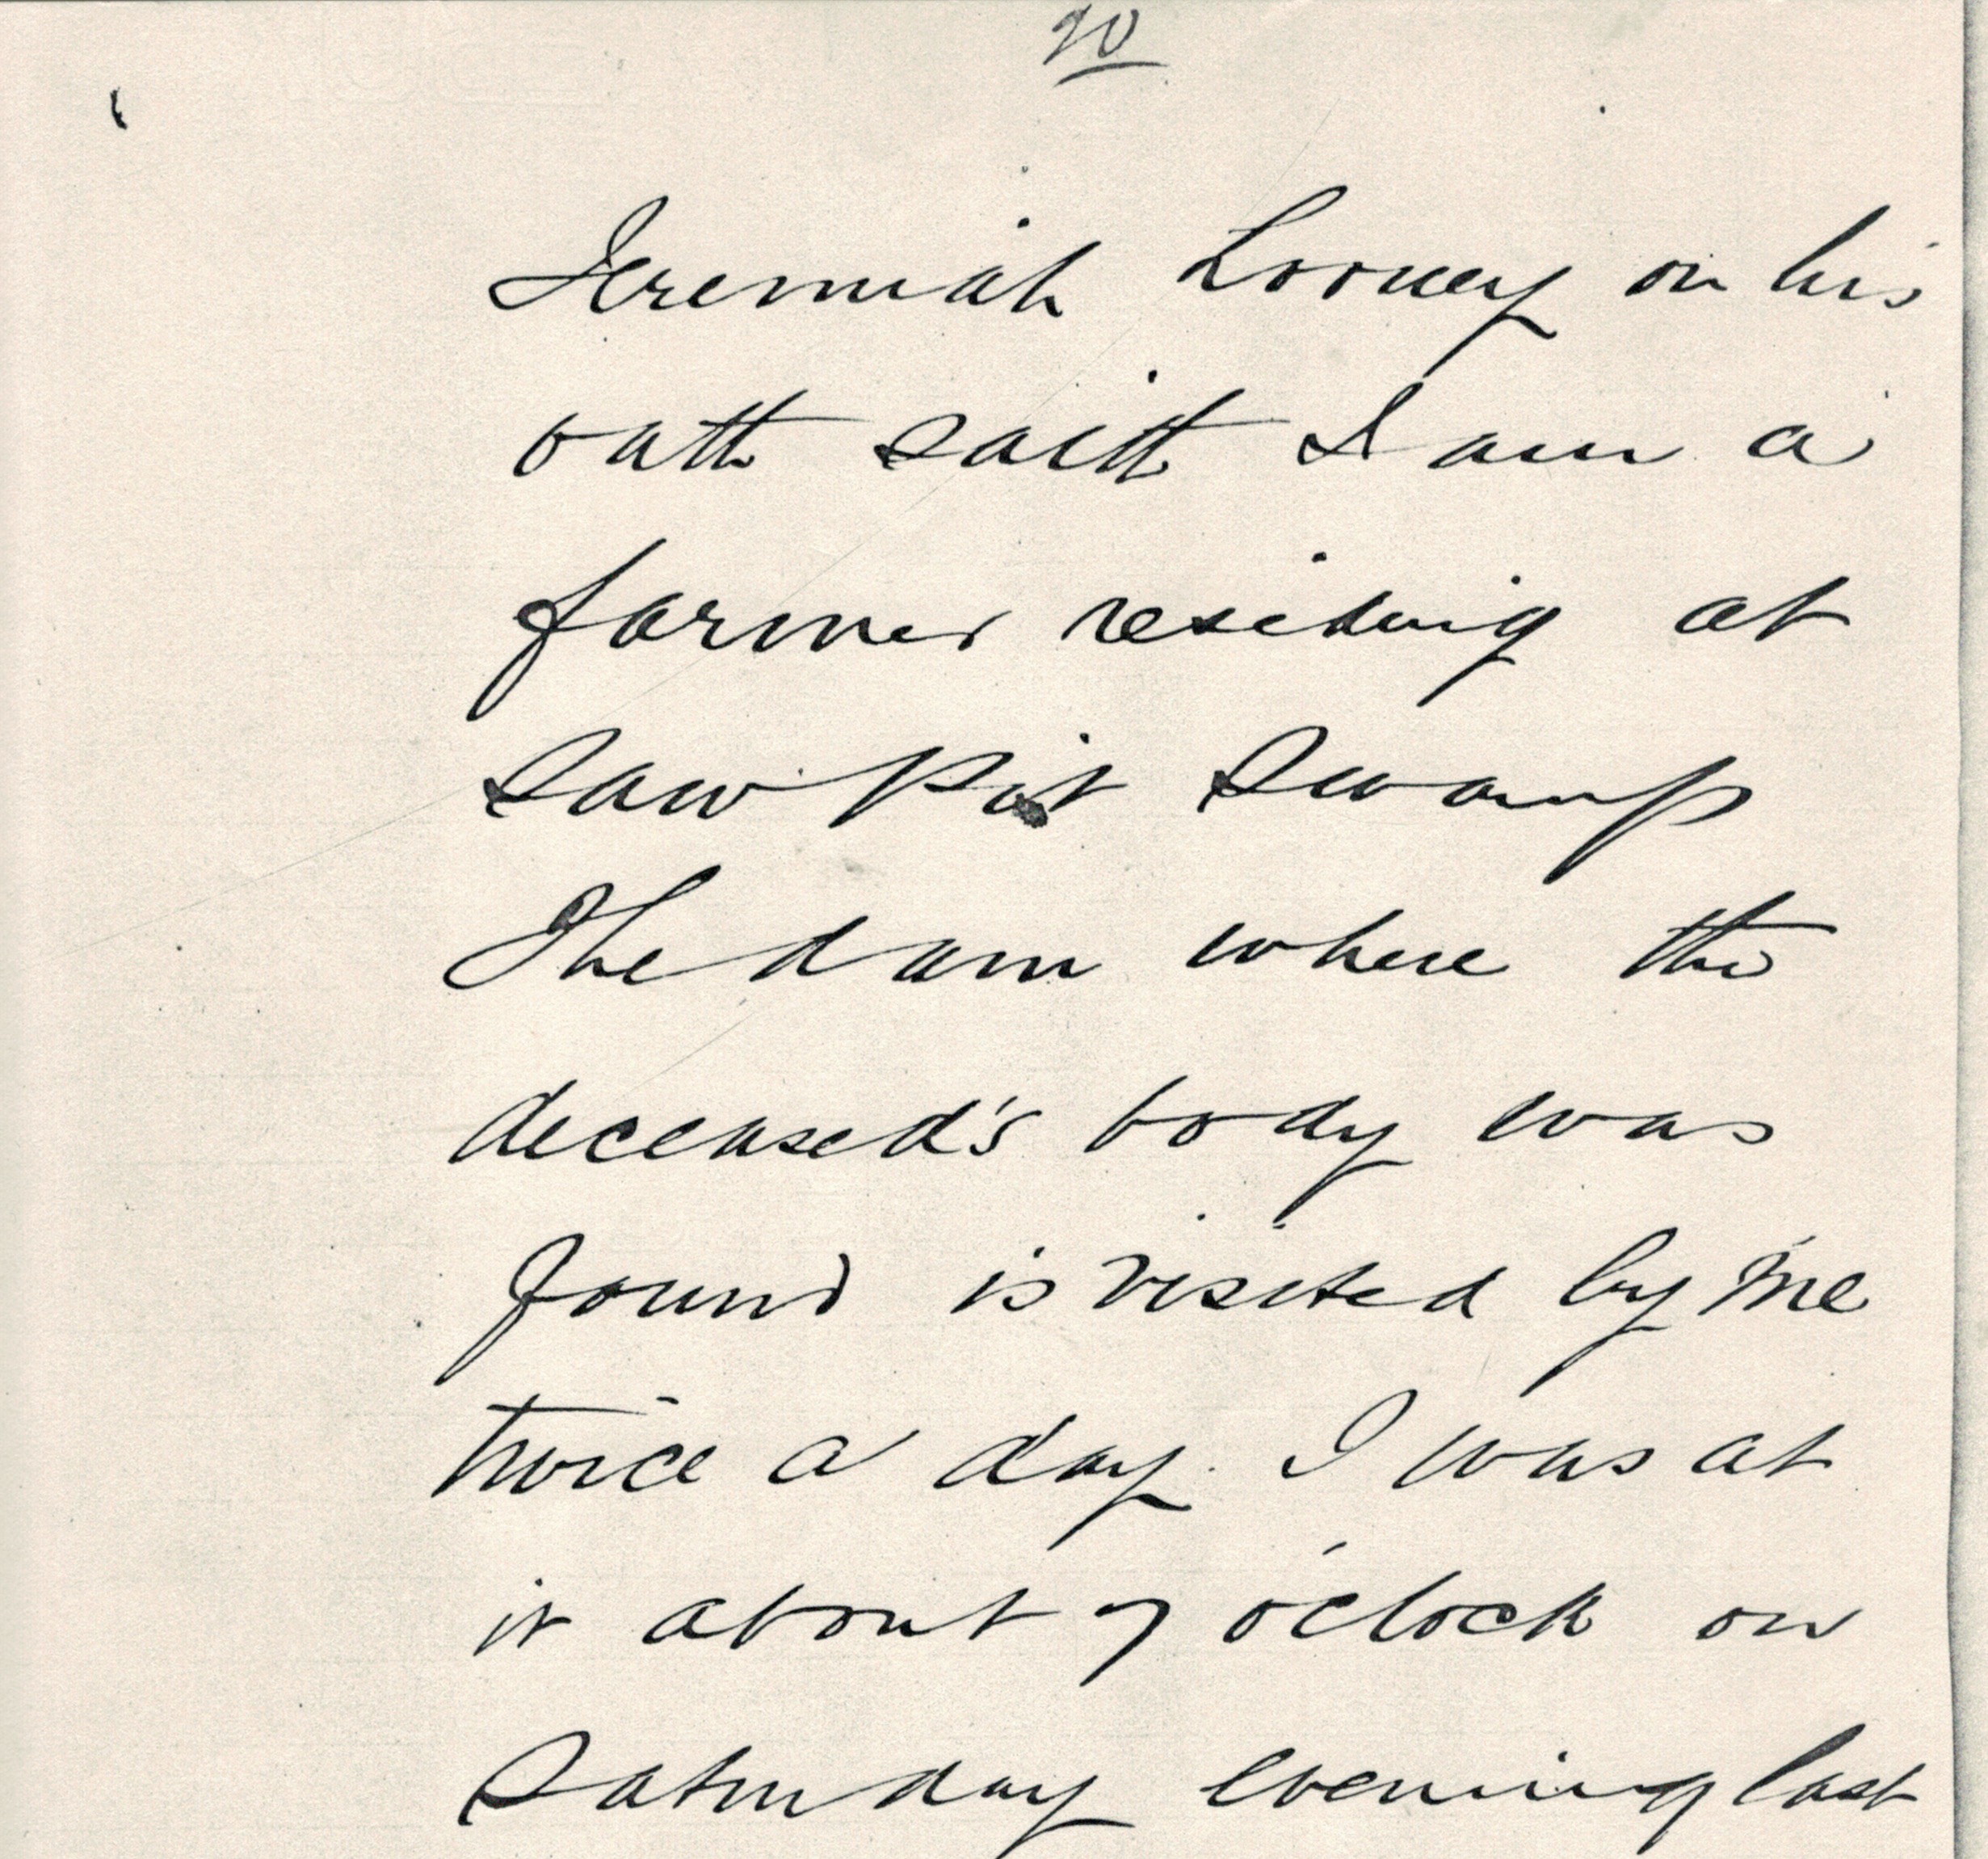 20
Jeremiah Looney on his
oath saith I am a
farmer residing at
Saw Pit Swamp
The dam where the
deceased's body was
found is visited by me
twice a day. I was at
it about 7 o'clock on
Saturday evening last